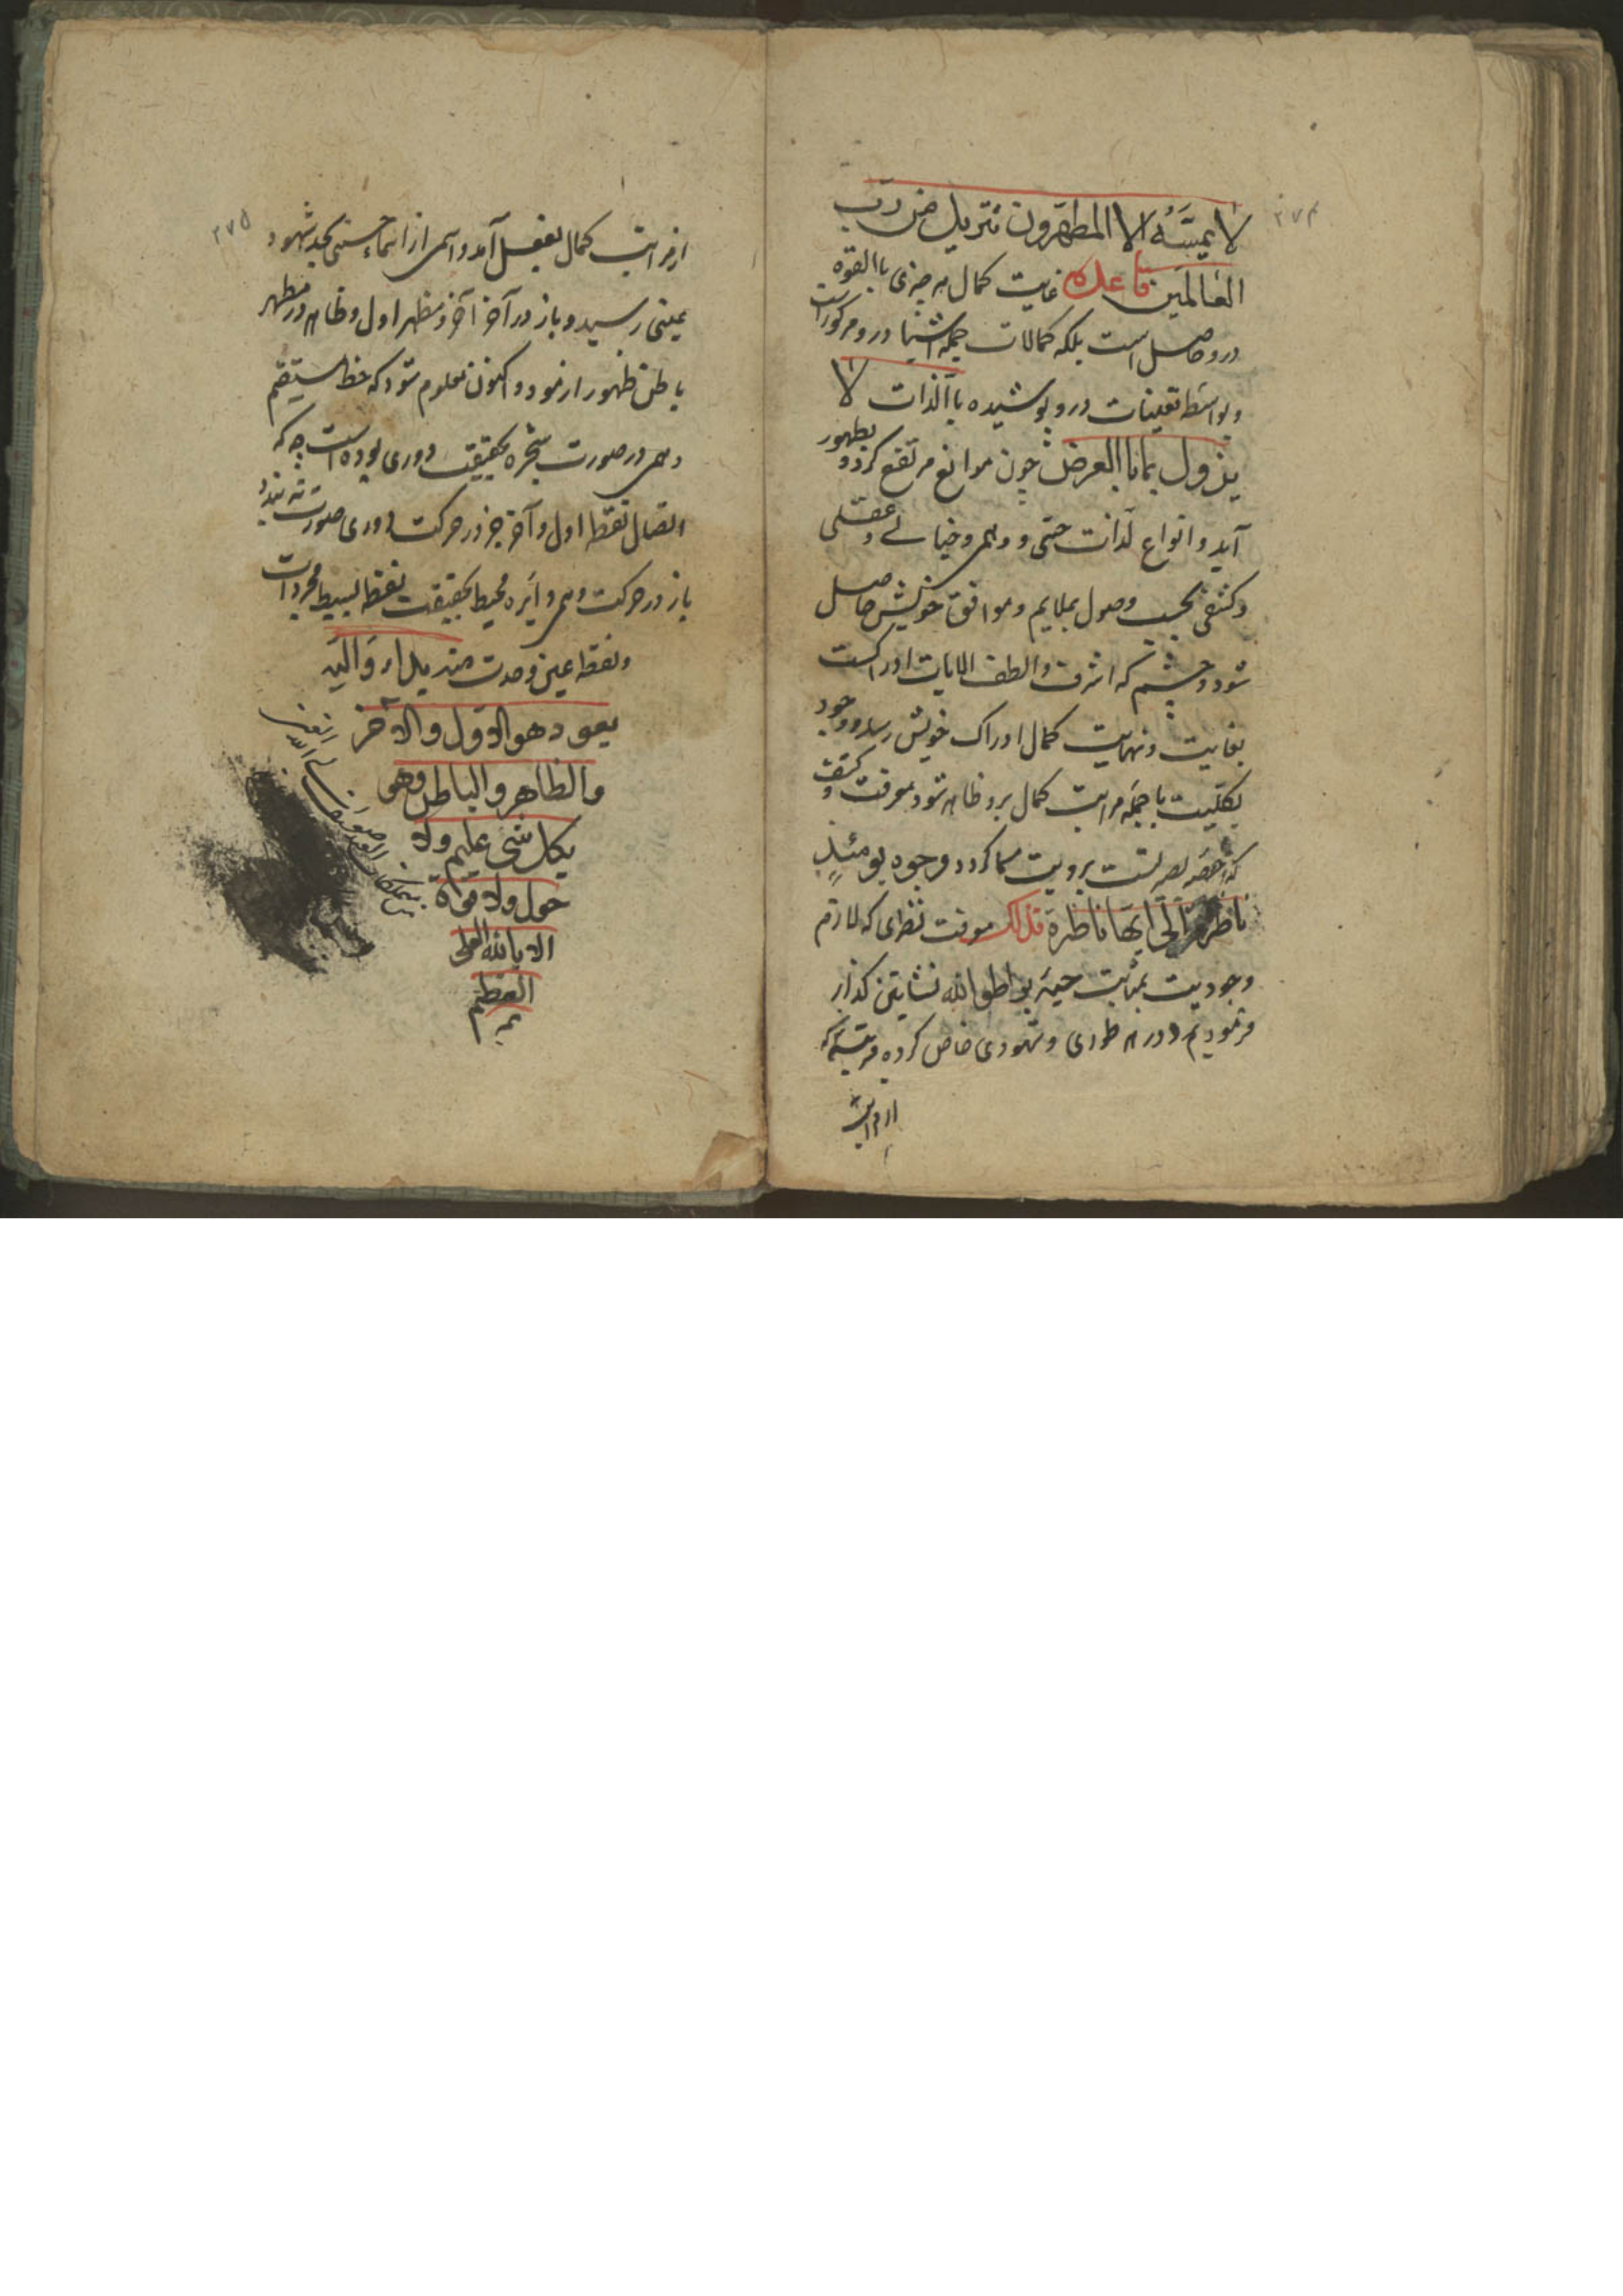 ۲۷۴
لا یمسّه الا المطهّرون تنزیل من رب
العالمین قاعده غایت کمال هر چیزی باالقوه
درو حاصل است بلکه کمالات جمله اشیا درو مرکوزست
و بواسطه تعینات درو پوشیده باالذات لا
یزول بماباالعرض چون موانع مرتفع کردد و بظهور
آید و انواع لذات حسّی و وهمی و خیالی و عقلی
و کشفی بحسب وصول بملایم و موافق خویش حاصل
شود و چشم که اشرف و الطف الایات ادراکست
بغایت و نهایت کمال ادراک خویش رسد و وجود
بکلیت با جمله مراتب کمال برو ظاهر شود معرفت و کشف
که حصه بصیرتست برویت مسما کردد وجوه یومئذ
ناظرة الی ربها ناظرة فذلک معرفت فطرای که لازم
وجودیت بمراتب حیة بواطوالله نشایتن کذار
فرمودیم و در هر طوری و شهودی خاص کرده مرتبه که
از مراتب
۲۷۵
از مراتب کمال بفعل آمد و اسمی از اسماء حسنی بحد شهود
عینی رسید و باز در آخر آخر و مظهر اول و ظاهر در مظهر
باطن ظهور ار نمود و اکنون معلوم شود که خط مستقیم
وهمی در صورت شجره بحقیقت دوری بوده است چه که
اتصال نقطه اول و آخر جز در حرکت دوری صورت نه بندد
باز در حرکت وهمی دایره محیط بحقیقت نقطه بسیط مجردات
و نقطه عین وحدت منه بدا و الیه
یعود هو الاول و الآخر
والظاهر والباطن وهو
بکل شی علیم ولا
حول ولا قوة
الا بالله العلی
العظیم
تمه